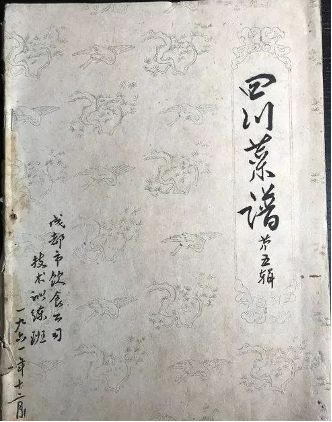 四川菜谱
第五辑
成都市饮食公司
技术训练班
一九六一年十二月